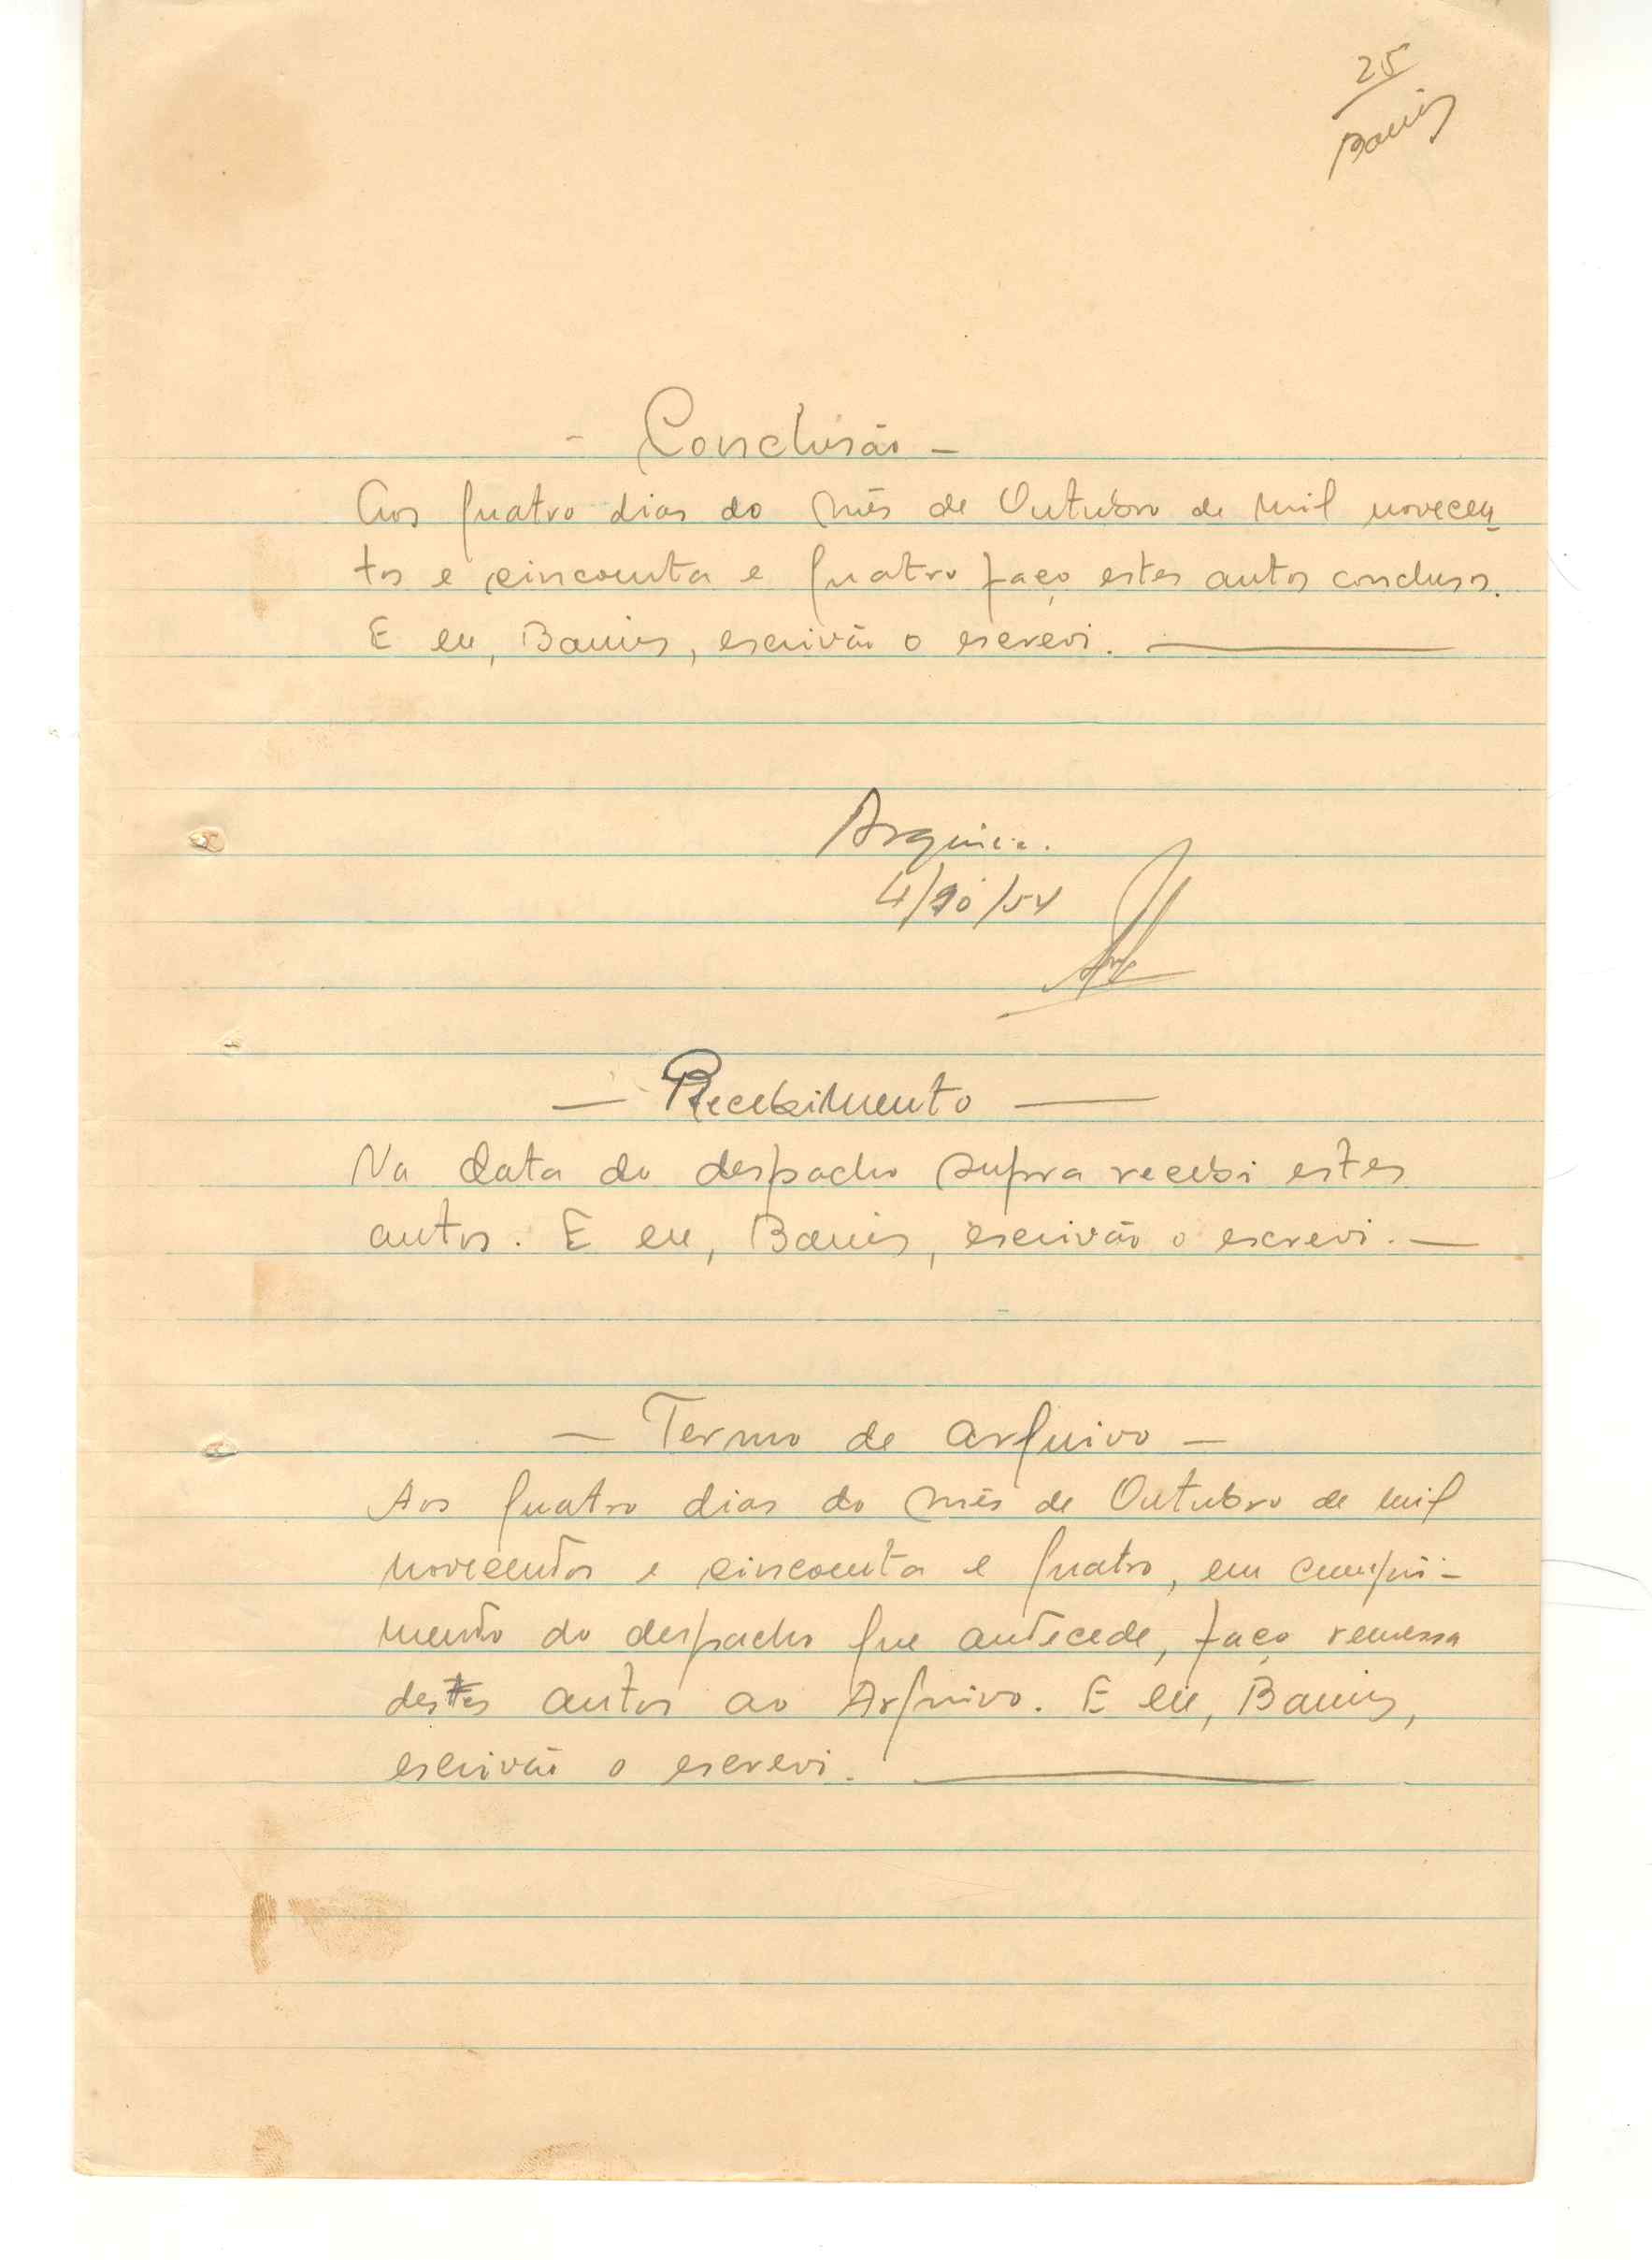 25
- Conclusão -
Aos quatro dias do mês de Outubro de mil novecen-
tos e cincoenta e quatro faço estes autos conclusos.
E eu, escrivão o escrevi.
Arquive.
4/10/54
- Recebimento -
Na data do despacho supra recebi estes
autos. E eu, escrivão o escrevi. -
- Termo de arquivo -
Aos quatro dias do mês de Outubro de mil
novecentos e cincoenta e quatro, em cumpri-
mento do despacho que antecede, faço remessa
destes autos ao Arquivo. E eu,
escrivão o escrevi.